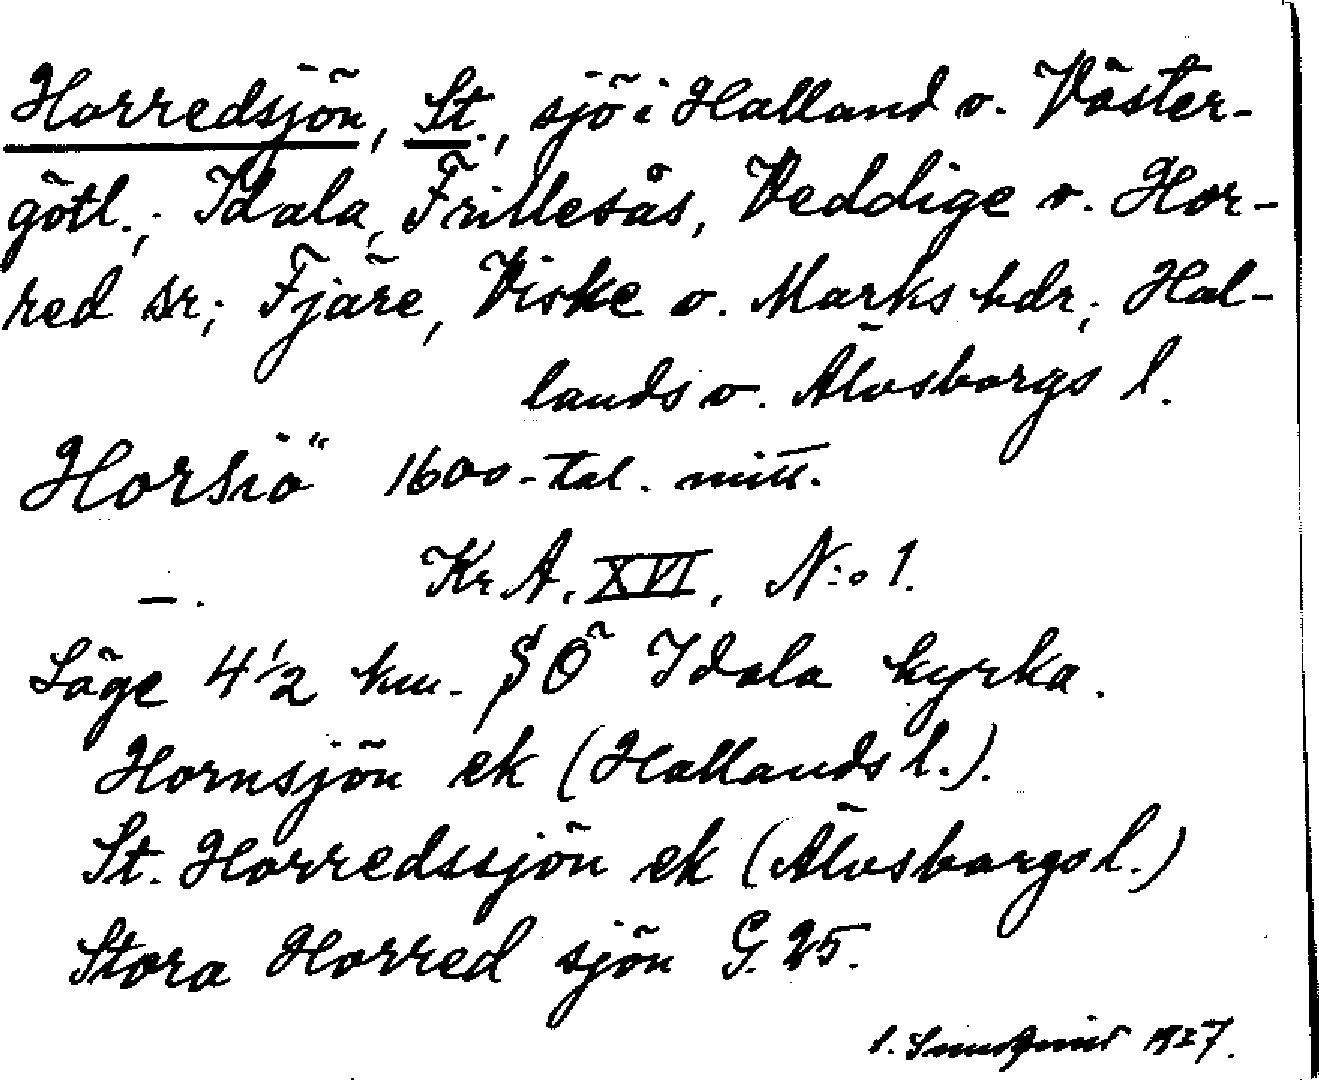 Horredsjön, St., sjö i Halland o. Väster-
götl.; Idala, Frillesås, Veddige o. Hor-
red sr; Fjäre, Viske o. Marks hdr; Hal-
lands o. Älvsborgs l.
Horsiö 1600-tal. mitt.
—. KrA. XVI, N:o 1.
Läge 4 1/2 km. SÖ Idala kyrka.
Hornsjön ek (Hallands l.).
St. Horredssjön ek (Älvsborgs l.)
Stora Horred sjön G. 25.
1927.